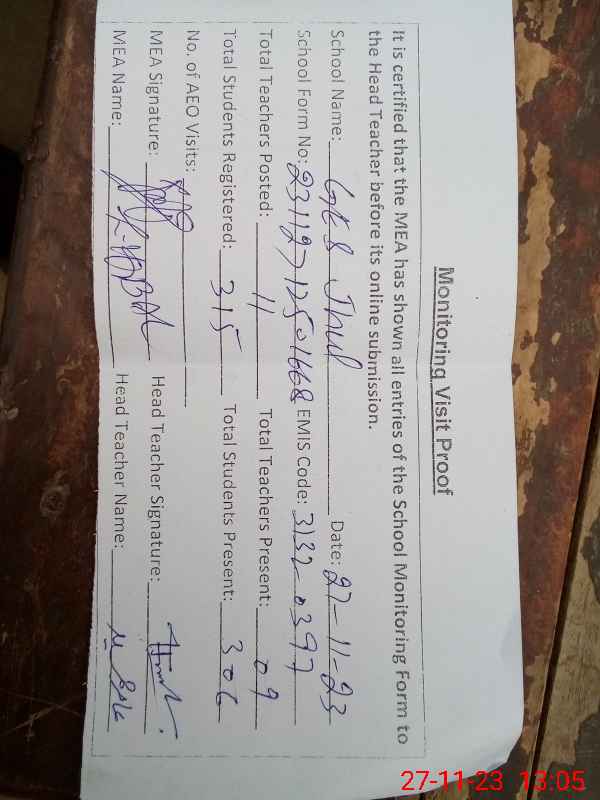 Monitoring Visit Proof
It is certified that the MEA has shown all entries of the School Monitoring Form to
the Head Teacher before its online submission.
School Name: Date: 27-11-23
School Form No: 23112712501668 EMIS Code: 3132-0397
Total Teachers Posted: 11 Total Teachers Present: 09
Total Students Registered: 315 Total Students Present: 306
No. of AEO Visits:
MEA Signature: Head Teacher Signature:
MEA Name: Head Teacher Name:
27-11-23 13:05